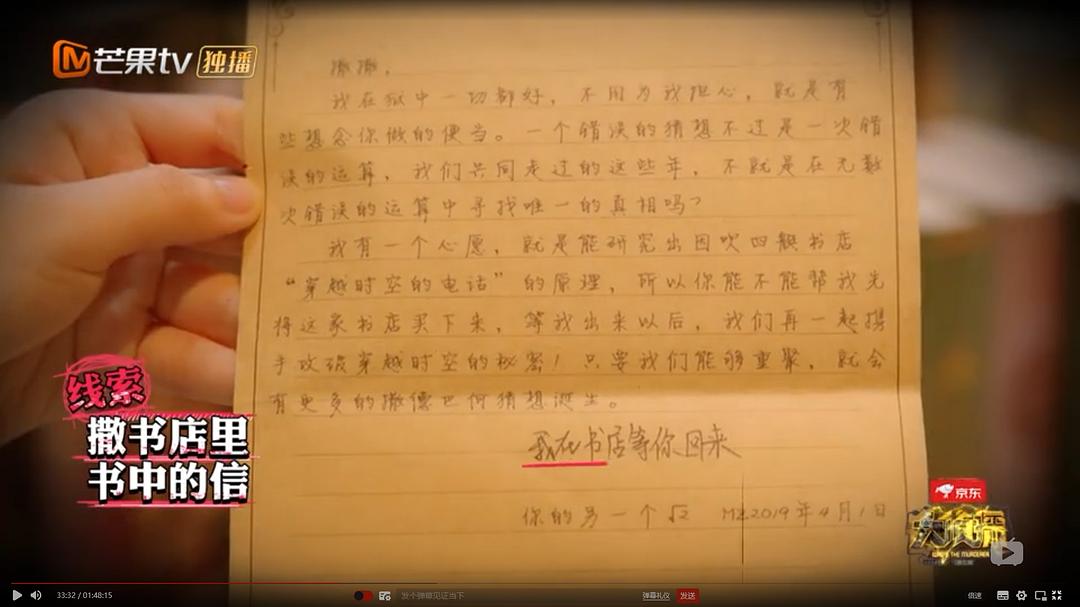 芒果tv 独播
撒撒，
我在狱中一切都好，不用为我担心，就是有
些想念你做的便当。一个错误的猜想不过是一次错
误的运算，我们共同走过的这些年，不就是在无数
次错误的运算中寻找唯一的真相吗？
我有一个心愿，就是能研究出因吹四靓书店
“穿越时空的电话”的原理，所以你能不能帮我先
将这家书店买下来，等我出来以后，我们再一起携
手攻破穿越时空的秘密！只要我们能够重聚，就会
有更多的撒德巴何猜想诞生。
我在书店等你回来
你的另一个√2 MZ2019年4月1日
线索
撒书店里
书中的信
京东
大侦探
WHO'S THE MURDERER
33:32 / 01:48:15
发个弹幕见证当下
弹幕礼仪
发送
倍速